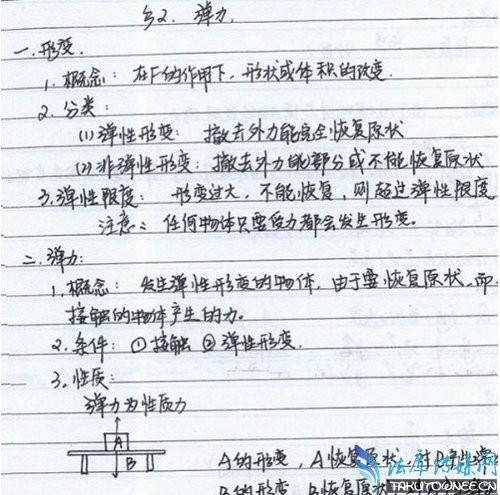 §2. 弹力.
一.形变.
1. 概念: 在F的作用下, 形状或体积的改变.
2. 分类:
(1) 弹性形变: 撤去外力能完全恢复原状
(2) 非弹性形变: 撤去外力能部分或不能恢复原状
3. 弹性限度: 形变过大, 不能恢复, 则超过弹性限度
注意: 任何物体只要受力都会发生形变。
二.弹力:
1. 概念: 发生弹性形变的物体, 由于要恢复原状, 而
接触的物体产生的力。
2. 条件: ①接触 ②弹性形变.
3. 性质:
弹力为性质力
A
B
A的形变, A恢复原状, 对B产生弹
B的形变 B恢复原状
法库传媒网
TAKUTOONEE.CN